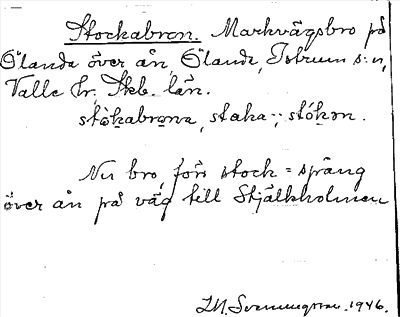 Stockabron. Markvägsbro på
Ölanda över ån, Ölanda, Istrum s:n,
Valle hr, Skb. län.
stòkabrona, staka-; stókən.
Nu bro, förr stock = spång
över ån på väg till Stjälkholmen
1946.